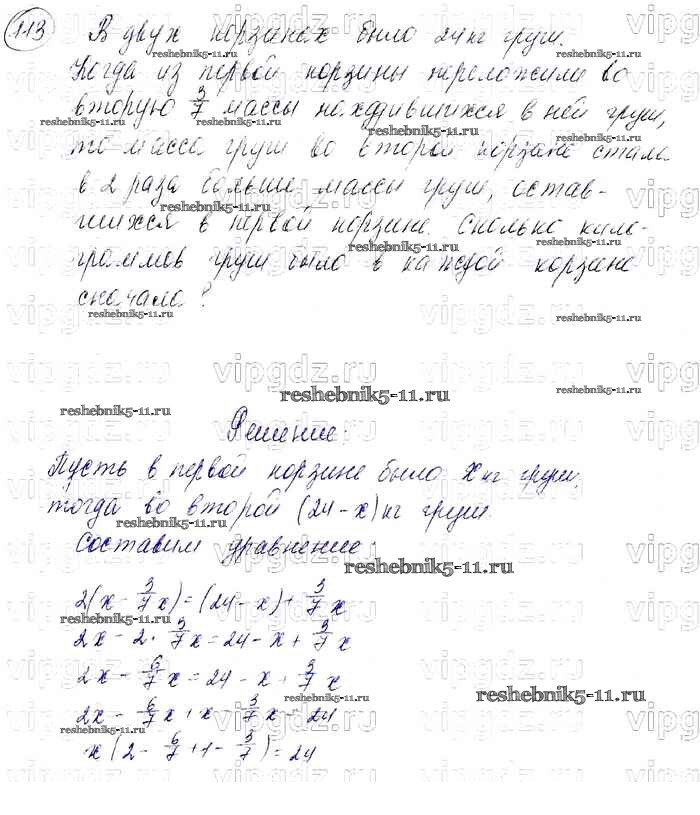 113
В двух корзинах было 24 кг груш.
Когда из первой корзины переложили во
вторую 3/7 массы находившихся в ней груш,
то масса груш во второй корзине стала
в 2 раза больше массы груш, остав-
шихся в первой корзине. Сколько кило-
граммов груш было в каждой корзине
сначала?
Решение:
Пусть в первой корзине было x кг груш,
тогда во второй (24-x) кг груш.
Составим уравнение:
2(x - 3/7 x) = (24 - x) + 3/7 x
2x - 2 · 3/7 x = 24 - x + 3/7 x
2x - 6/7 x = 24 - x + 3/7 x
2x - 6/7 x + x - 3/7 x = 24
x(2 - 6/7 + 1 - 3/7) = 24
vipgdz.ru
reshebnik5-11.ru